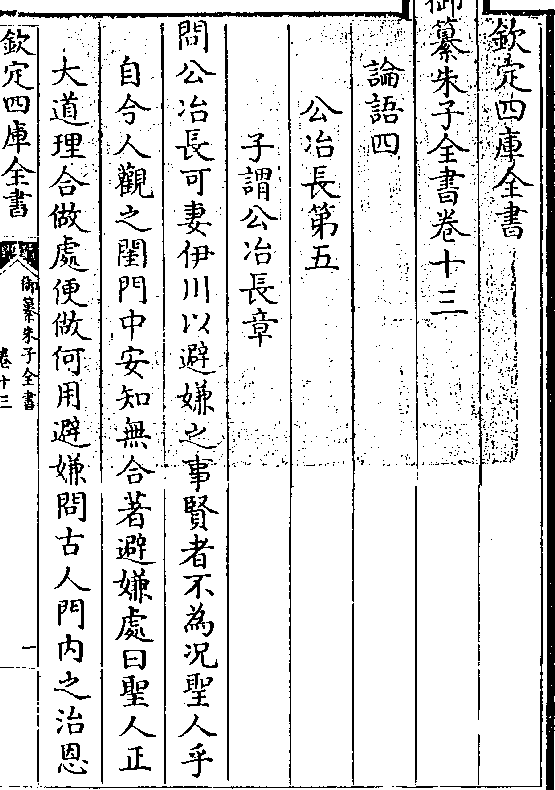 欽定四庫全書
御纂朱子全書卷十三
論語四
公冶長第五
子謂公冶長章
問公冶長可妻伊川以避嫌之事賢者不為况聖人乎
自今人觀之閨門中安知無合著避嫌處曰聖人正
大道理合做處便做何用避嫌問古人門内之治恩
欽定四庫全書
御纂朱子全書
卷十三
一